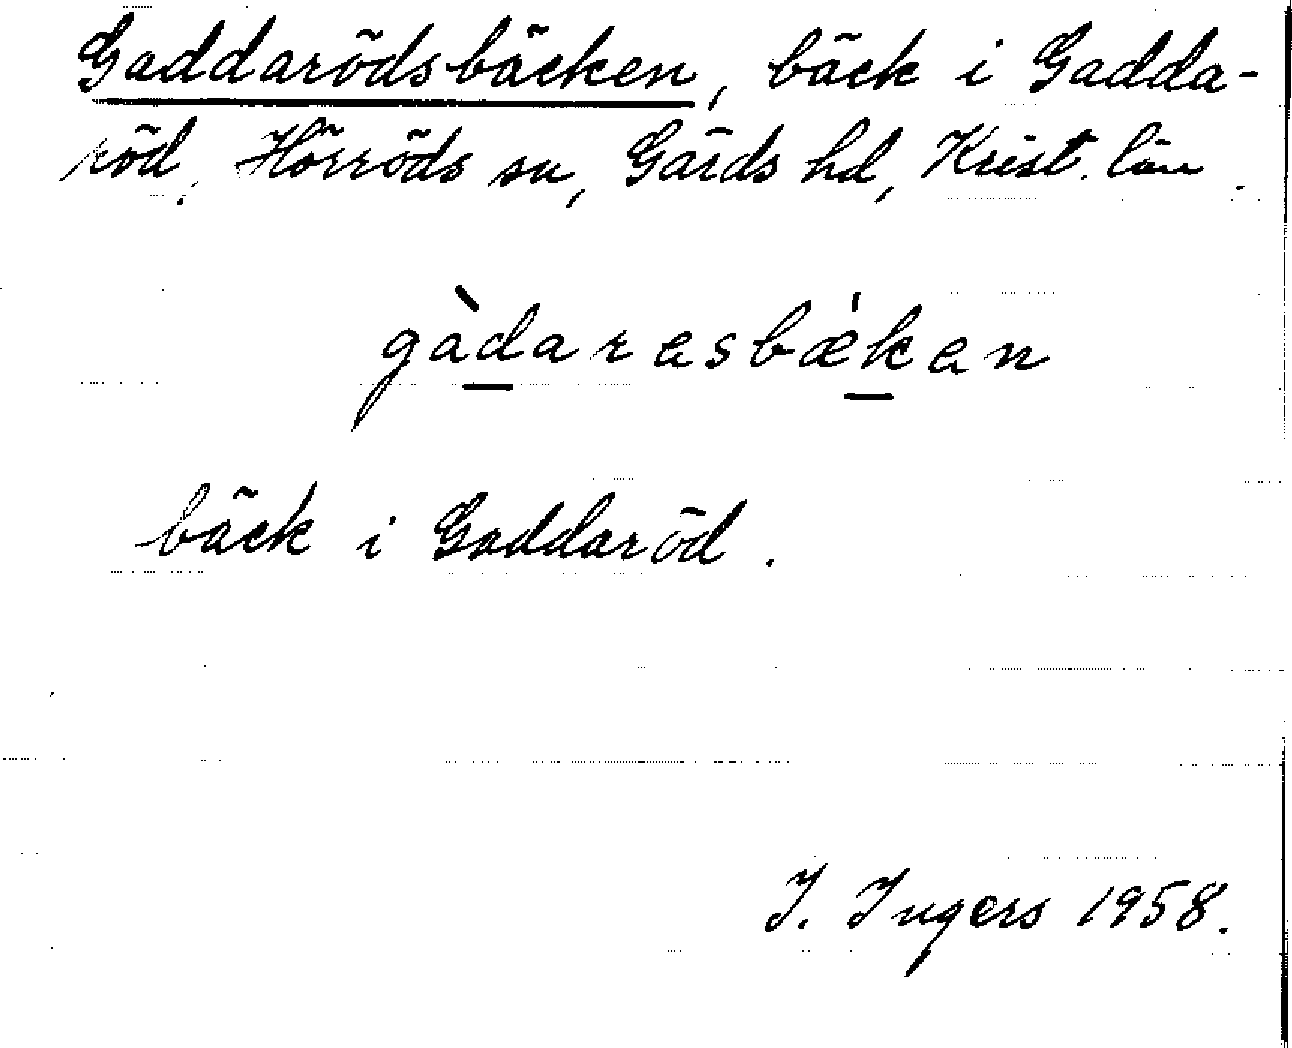 Gaddarödsbäcken, bäck i Gadda-
röd, Hörröds sn, Gärds hd, Krist. län.
gàdaresbǽken
bäck i Gaddaröd.
I. Ingers 1958.